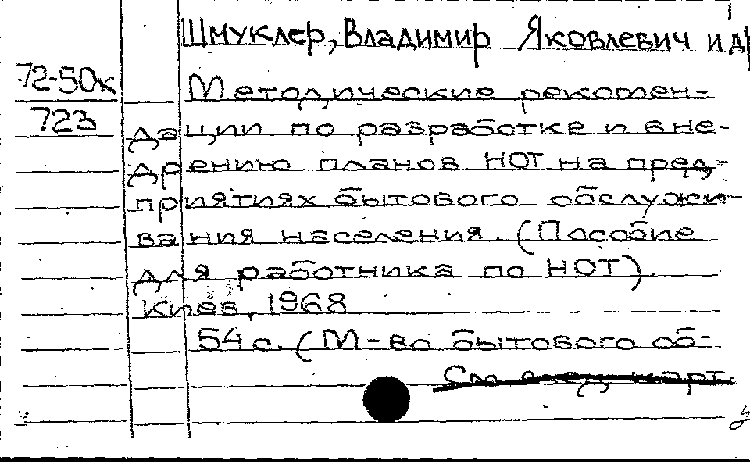 Шмуклер, Владимир Яковлевич и др
72-50к
Методические рекомен-
723
дации по разработке и вне-
дрению планов НОТ на пред-
приятиях бытового обслужи-
вания населения. (Пособие
для работника по НОТ).
Киев, 1968
54 с. (М-во бытового об-
См. след. карт.